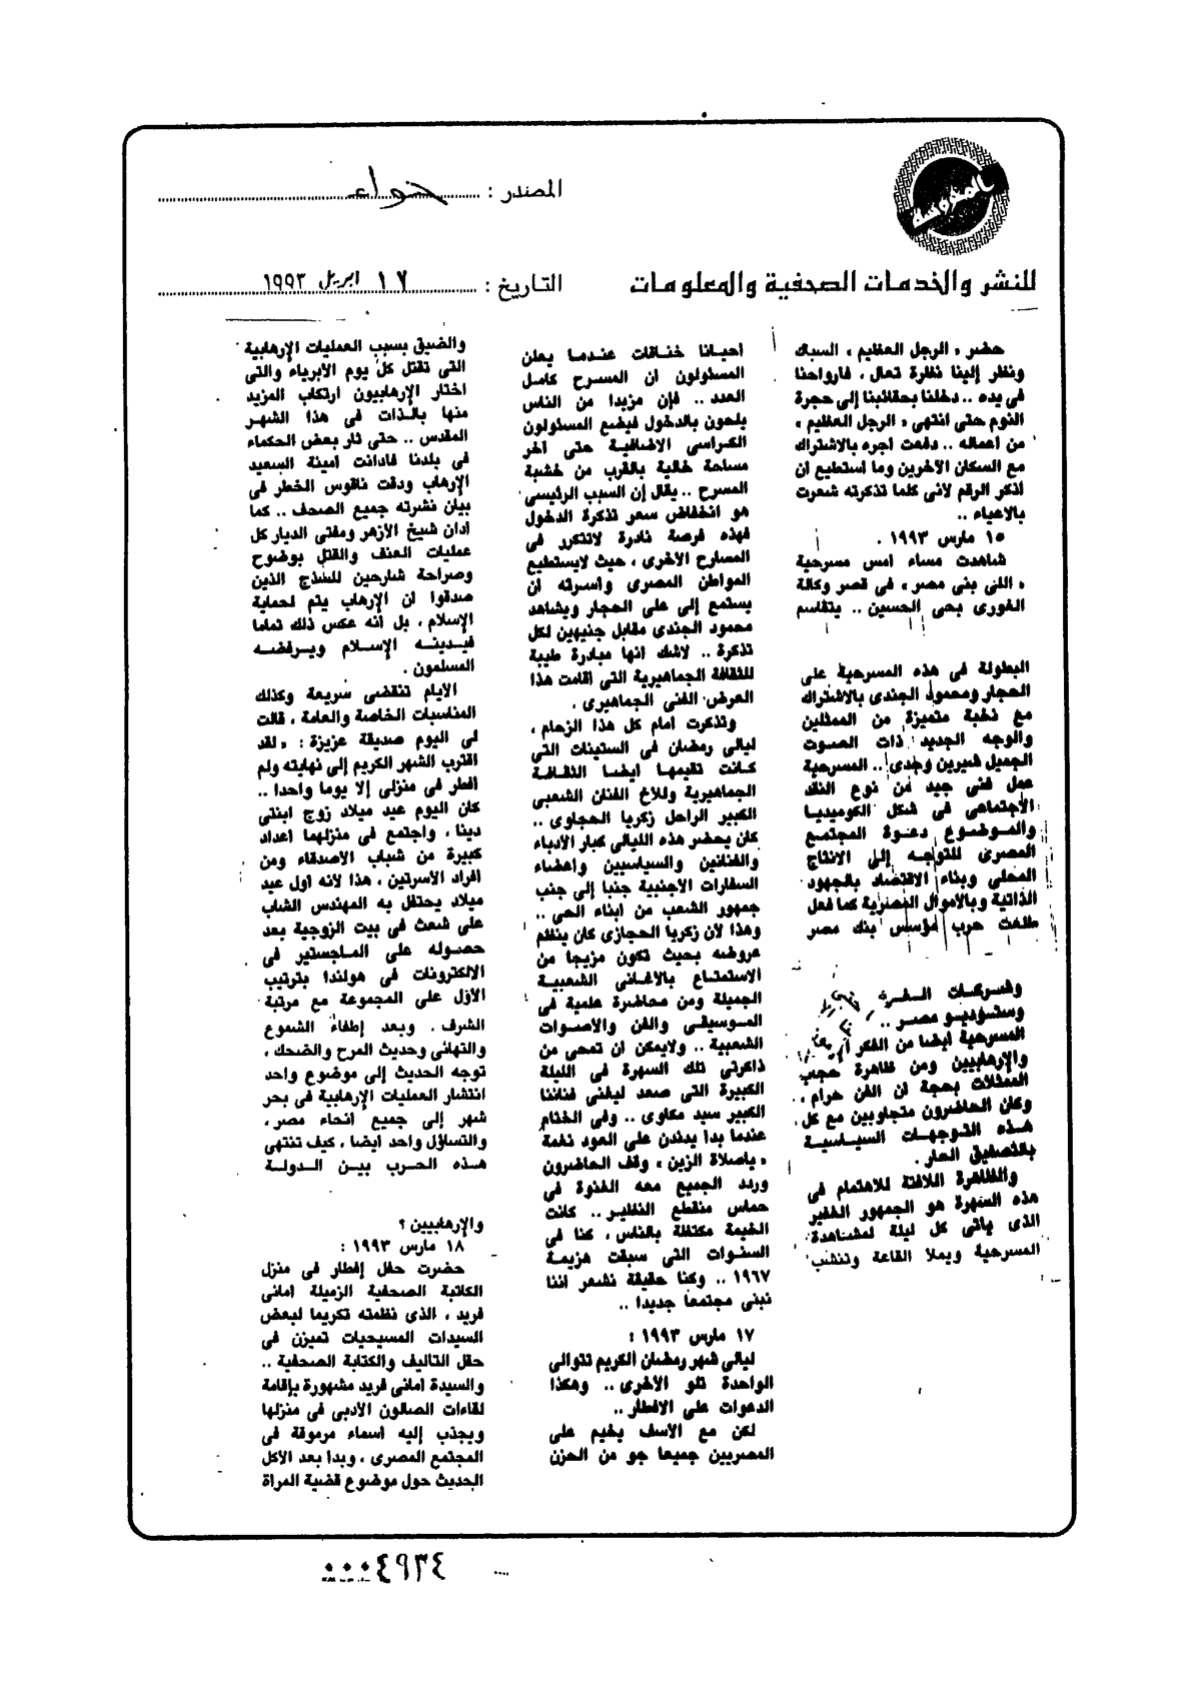 المحروسة
المصدر : حواء
للنشر والخدمات الصحفية والمعلومات
التاريخ : ١٧ ابريل ١٩٩٣
حضر « الرجل العظيم » السباك
ونظر إلينا نظرة تعال ، فارواحنا
فى يده .. دخلنا بحقائبنا إلى حجرة
النوم حتى انتهى « الرجل العظيم »
من اعماله .. دفعت اجره بالاشتراك
مع السكان الآخرين وما استطيع ان
اذكر الرقم لانى كلما تذكرته شعرت
بالاعياء ..
١٥ مارس ١٩٩٣ .
شاهدت مساء امس مسرحية
« اللى بنى مصر » فى قصر وكالة
الغورى بحى الحسين .. يتقاسم
البطولة فى هذه المسرحية على
الحجار ومحمود الجندى بالاشتراك
مع نخبة متميزة من الممثلين
والوجه الجديد ذات الصوت
الجميل شيرين وجدى .. المسرحية
عمل فنى جيد من نوع النقد
الاجتماعى فى شكل الكوميديا
والموضوع دعوة المجتمع
المصرى للتوجه إلى الانتاج
المحلى وبناء الاقتصاد بالجهود
الذاتية وبالاموال المصرية كما فعل
طلعت حرب مؤسس بنك مصر
وشركات
وستوديو مصر ..
المسرحية ايضا من الفكر
والإرهابيين ومن ظاهرة حجاب
الممثلات بحجة ان الفن حرام ،
وكان الحاضرون متجاوبين مع كل
هذه التوجهات السياسية
بالتصفيق الحار .
والظاهرة اللافتة للاهتمام فى
هذه السهرة هو الجمهور الغفير
الذى ياتى كل ليلة لمشاهدة
المسرحية ويملا القاعة وتنشب
احيانا خناقات عندما يعلن
المسئولون ان المسرح كامل
العدد .. فإن مزيدا من الناس
يلحون بالدخول فيضع المسئولون
الكراسى الاضافية حتى آخر
مساحة خالية بالقرب من خشبة
المسرح .. يقال إن السبب الرئيسى
هو انخفاض سعر تذكرة الدخول
فهذه فرصة نادرة لاتتكرر فى
المسارح الاخرى ، حيث لايستطيع
المواطن المصرى واسرته ان
يستمع إلى على الحجار ويشاهد
محمود الجندى مقابل جنيهين لكل
تذكرة .. لاشك انها مبادرة طيبة
للثقافة الجماهيرية التى اقامت هذا
العرض الفنى الجماهيرى .
وتذكرت امام كل هذا الزحام ،
ليالى رمضان فى الستينات التى
كانت تقيمها ايضا الثقافة
الجماهيرية وللاخ الفنان الشعبى
الكبير الراحل زكريا الحجاوى ..
كان يحضر هذه الليالى كبار الادباء
والفنانين والسياسيين واعضاء
السفارات الاجنبية جنبا إلى جنب
جمهور الشعب من ابناء الحى ..
وهذا لان زكريا الحجازى كان ينظم
عروضه بحيث تكون مزيجا من
الاستمتاع بالاغانى الشعبية
الجميلة ومن محاضرة علمية فى
الموسيقى والفن والاصوات
الشعبية .. ولايمكن ان تمحى من
ذاكرتى تلك السهرة فى الليلة
الكبيرة التى صعد ليغنى فناننا
الكبير سيد مكاوى .. وفى الختام
عندما بدا يدندن على العود نغمة
« ياصلاة الزين » وقف الحاضرون
وردد الجميع معه الغنوة فى
حماس منقطع النظير .. كانت
الخيمة مكتظة بالناس ، كنا فى
السنوات التى سبقت هزيمة
١٩٦٧ .. وكنا حقيقة نشعر اننا
نبنى مجتمعا جديدا ..
١٧ مارس ١٩٩٣ :
ليالى شهر رمضان الكريم تتوالى
الواحدة تلو الاخرى .. وهكذا
الدعوات على الافطار ..
لكن مع الاسف يخيم على
المصريين جميعا جو من الحزن
والضيق بسبب العمليات الإرهابية
التى تقتل كل يوم الأبرياء والتى
اختار الإرهابيون ارتكاب المزيد
منها بالذات فى هذا الشهر
المقدس .. حتى ثار بعض الحكماء
فى بلدنا فادانت امينة السعيد
الإرهاب ودقت ناقوس الخطر فى
بيان نشرته جميع الصحف .. كما
ادان شيخ الازهر ومفتى الديار كل
عمليات العنف والقتل بوضوح
وصراحة شارحين للسذج الذين
صدقوا ان الإرهاب يتم لحماية
الإسلام ، بل انه عكس ذلك تماما
فيدينه الإسلام ويرفضه
المسلمون .
الايام تنقضى سريعة وكذلك
المناسبات الخاصة والعامة ، قالت
لى اليوم صديقة عزيزة : « لقد
اقترب الشهر الكريم إلى نهايته ولم
افطر فى منزلى إلا يوما واحدا ..
كان اليوم عيد ميلاد زوج ابنتى
دينا ، واجتمع فى منزلهما اعداد
كبيرة من شباب الاصدقاء ومن
افراد الاسرتين ، هذا لانه اول عيد
ميلاد يحتفل به المهندس الشاب
على شعث فى بيت الزوجية بعد
حصوله على الماجستير فى
الالكترونات فى هولندا بترتيب
الأول على المجموعة مع مرتبة
الشرف . وبعد إطفاء الشموع
والتهانى وحديث المرح والضحك ،
توجه الحديث إلى موضوع واحد
انتشار العمليات الإرهابية فى بحر
شهر إلى جميع انحاء مصر ،
والتساؤل واحد ايضا ، كيف تنتهى
هذه الحرب بين الدولة
والإرهابيين ؟
١٨ مارس ١٩٩٣ :
حضرت حفل إفطار فى منزل
الكاتبة الصحفية الزميلة امانى
فريد ، الذى نظمته تكريما لبعض
السيدات المسيحيات تميزن فى
حقل التاليف والكتابة الصحفية ..
والسيدة امانى فريد مشهورة بإقامة
لقاءات الصالون الأدبى فى منزلها
ويجذب إليه اسماء مرموقة فى
المجتمع المصرى ، وبدا بعد الاكل
الحديث حول موضوع قضية المراة